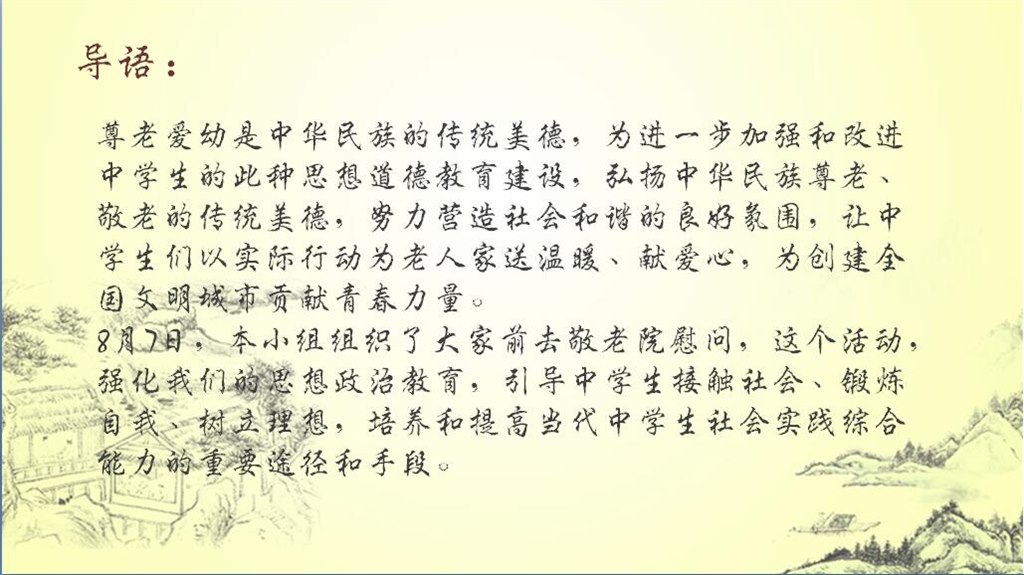 导语：
尊老爱幼是中华民族的传统美德，为进一步加强和改进
中学生的此种思想道德教育建设，弘扬中华民族尊老、
敬老的传统美德，努力营造社会和谐的良好氛围，让中
学生们以实际行动为老人家送温暖、献爱心，为创建全
国文明城市贡献青春力量。
8月7日，本小组组织了大家前去敬老院慰问，这个活动，
强化我们的思想政治教育，引导中学生接触社会、锻炼
自我、树立理想，培养和提高当代中学生社会实践综合
能力的重要途径和手段。